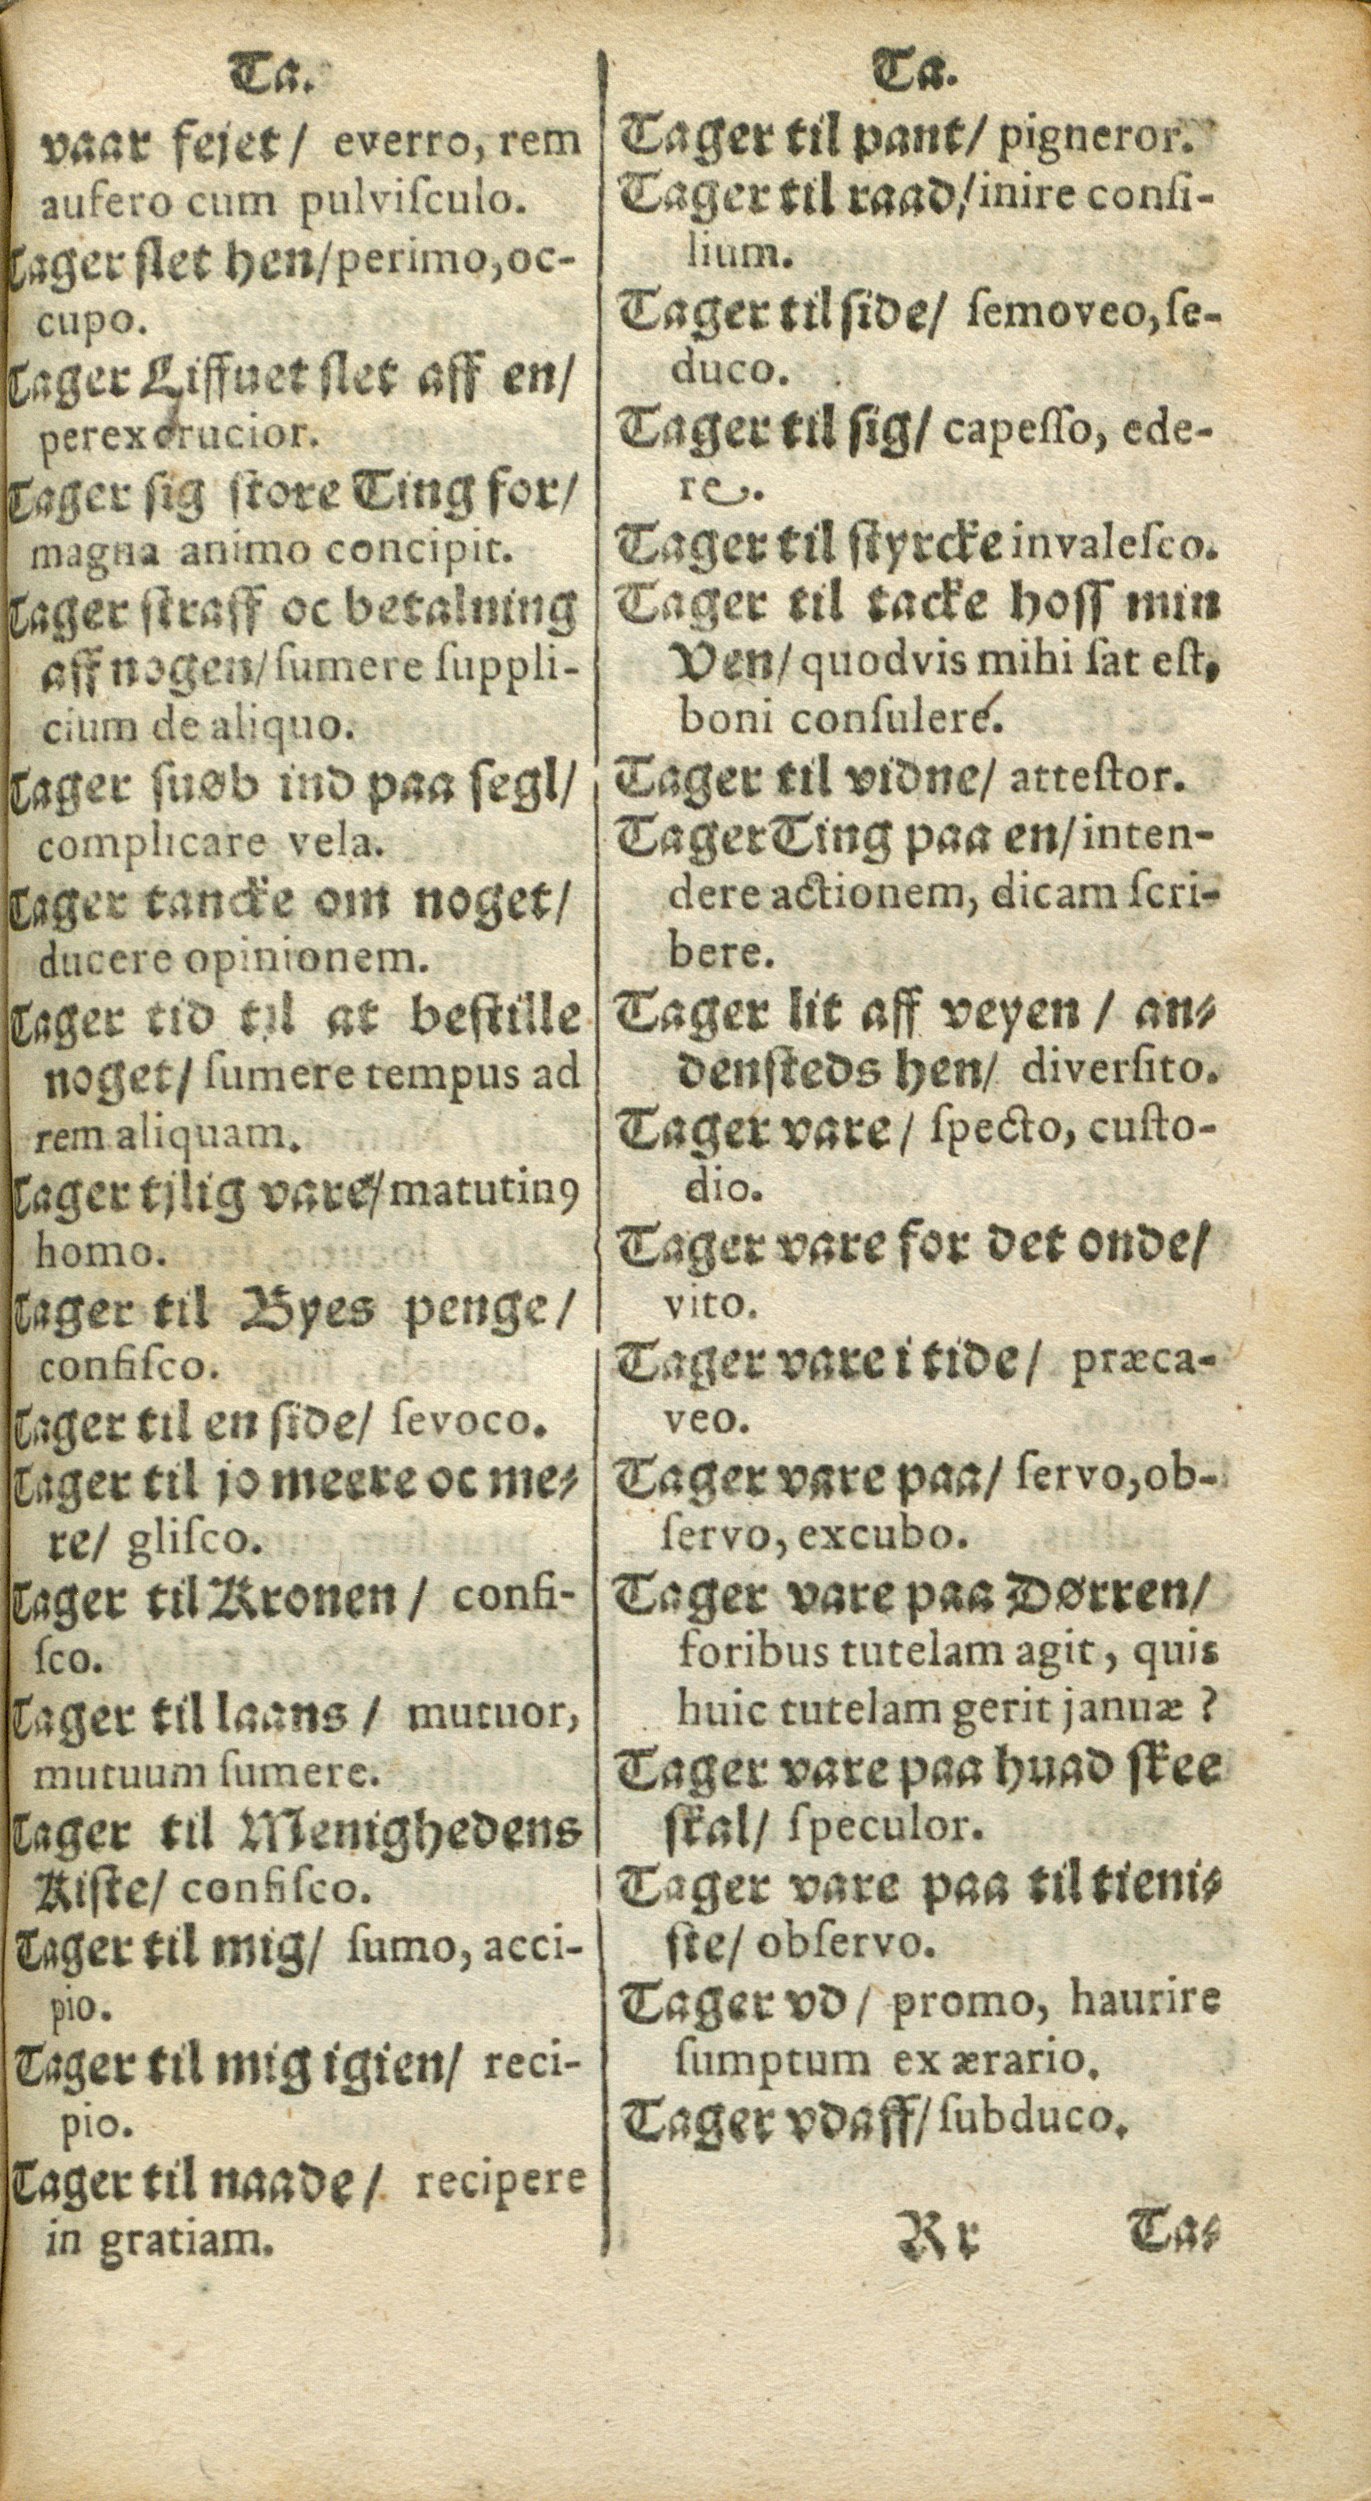 Ta.
vaar fejet/ everro, rem
aufero cum pulviſculo.
Tager slet hen/perimo, oc-
cupo.
Tager Liffuet slet aff en/
perexcrucior.
Tager sig store Ting for/
magna animo concipit.
Tager straff oc betalning
aff nogen/ſumere ſuppli-
cium de aliquo.
Tager suøb ind paa segl/
complicare vela.
Tager tancke om noget/
ducere opinionem.
Tager tid til at bestille
noget/ ſumere tempus ad
rem aliquam.
Tager tjlig vare/matutinꝰ
homo.
Tager til Byes penge/
confiſco.
Tager til en side/ ſevoco.
Tager til jo meere oc me-
re/ gliſco.
Tager til Kronen/ confi-
ſco.
Tager til laans/ mutuor,
mutuum ſumere.
Tager til Menighedens
Kiste/ confiſco.
Tager til mig/ ſumo, acci-
pio.
Tager til mig igien/ reci-
pio.
Tager til naade/ recipere
in gratiam.
Ta.
Tager til pant/ pigneror.
Tager til raad/inire conſi-
lium.
Tager til side/ ſemoveo, ſe-
duco.
Tager til sig/ capeſſo, ede-
re.
Tager til styrcke invaleſco.
Tager til tacke hoss min
Ven/ quodvis mihi ſat eſt,
boni conſulere.
Tager til vidne/ atteſtor.
Tager Ting paa en/inten-
dere actionem, dicam ſcri-
bere.
Tager lit aff veyen/ an-
densteds hen/ diverſito.
Tager vare/ ſpecto, cuſto-
dio.
Tager vare for det onde/
vito.
Tager vare i tide/ præca-
veo.
Tager vare paa/ ſervo, ob-
ſervo, excubo.
Tager vare paa Dørren/
foribus tutelam agit, quis
huic tutelam gerit januæ ?
Tager vare paa huad skee
skal/ ſpeculor.
Tager vare paa til tieni-
ste/ obſervo.
Tager vd/ promo, haurire
ſumptum ex ærario.
Tager vdaff/ſubduco.
Rr Ta-